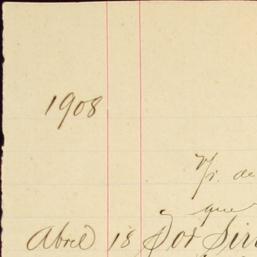 1908
de
que
Abril 18 Por Sir